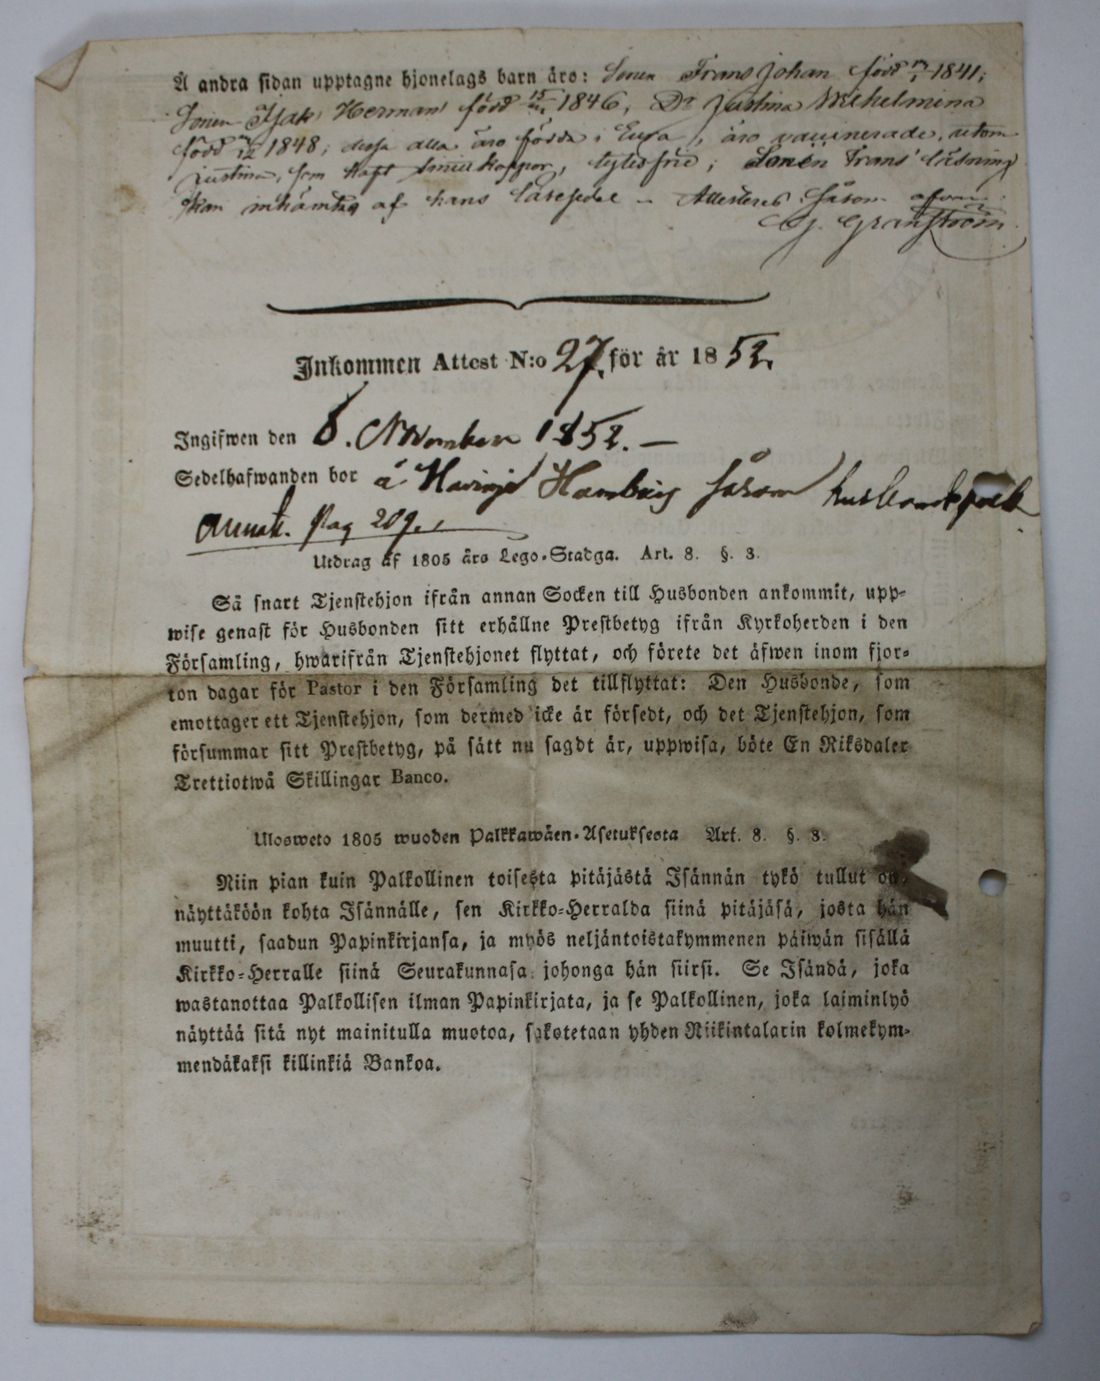 Å andra sidan upptagne hjonelags barn äro: Sonen Frans Johan född 1841;
Sonen Isak Herman född 1846, Dr Justina Wilhelmina
född 1848; dessa alla äro födda i Eura, äro vaccinerade, utom
Justina, som haft Smittkoppor, lytesfrie; Sonen Frans'
kan inhämtas af hans Läsesedel - Attesteras såsom ofvan
Granström
Inkommen Attest N:o 27. för år 1852.
Ingifwen den 8. November 1852. —
Sedelhafwanden bor å Hamberg såsom
Pag 209.
Utdrag af 1805 års Lego-Stadga. Art. 8. §. 3.
Så snart Tjenstehjon ifrån annan Socken till Husbonden ankommit, upp-
wise genast för Husbonden sitt erhållne Prestbetyg ifrån Kyrkoherden i den
Församling, hwarifrån Tjenstehjonet flyttat, och förete det äfwen inom fjor-
ton dagar för Pastor i den Församling det tillflyttat: Den Husbonde, som
emottager ett Tjenstehjon, som dermed icke är försedt, och det Tjenstehjon, som
försummar sitt Prestbetyg, på sätt nu sagdt är, uppwisa, böte En Riksdaler
Trettiotwå Skillingar Banco.
Ulosweto 1805 wuoden Palkkawäen-Asetuksesta Art. 8. §. 3.
Niin pian kuin Palkollinen toisesta pitäjästä Isännän tykö tullut on,
näyttäköön kohta Isännälle, sen Kirkko-Herralda siinä pitäjäsä, josta hän
muutti, saadun Papinkirjansa, ja myös neljäntoistakymmenen päiwän sisällä
Kirkko-Herralle siinä Seurakunnasa johonga hän siirsi. Se Isändä, joka
wastanottaa Palkollisen ilman Papinkirjata, ja se Palkollinen, joka laiminlyö
näyttää sitä nyt mainitulla muotoa, sakotetaan yhden Riikintalarin kolmekym-
mendäkaksi killinkiä Bankoa.